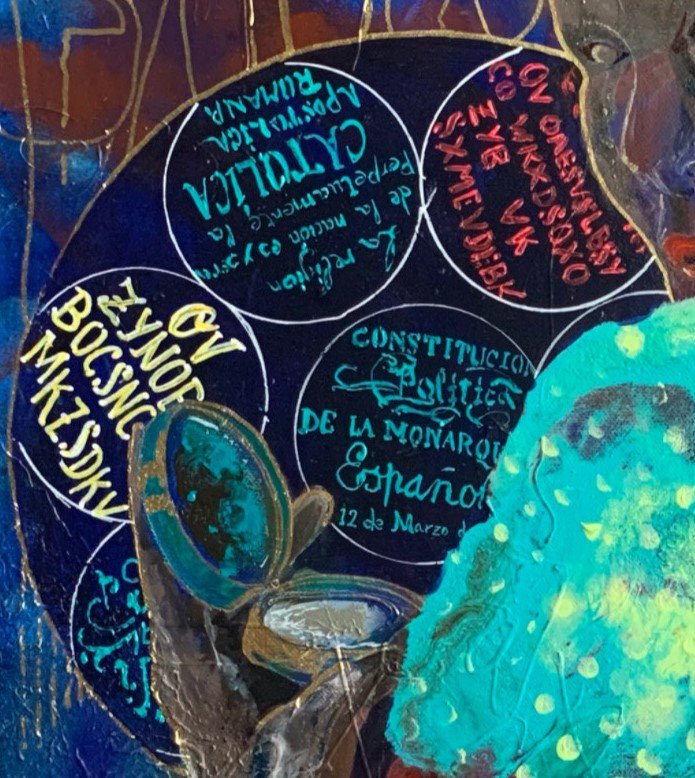 La religion
de la nación es y será
Perpetuamente la
CATOLICA
APOSTOLICA
RUMANA
OV OAESVSLBSY
CO WKXDSOXO
ZYB VK
SXMEVDEBK
OV
ZYNO
BOCSN
MKZSDKV
CONSTITUCION
Política
DE LA MONARQU
Español
12 de Marzo d